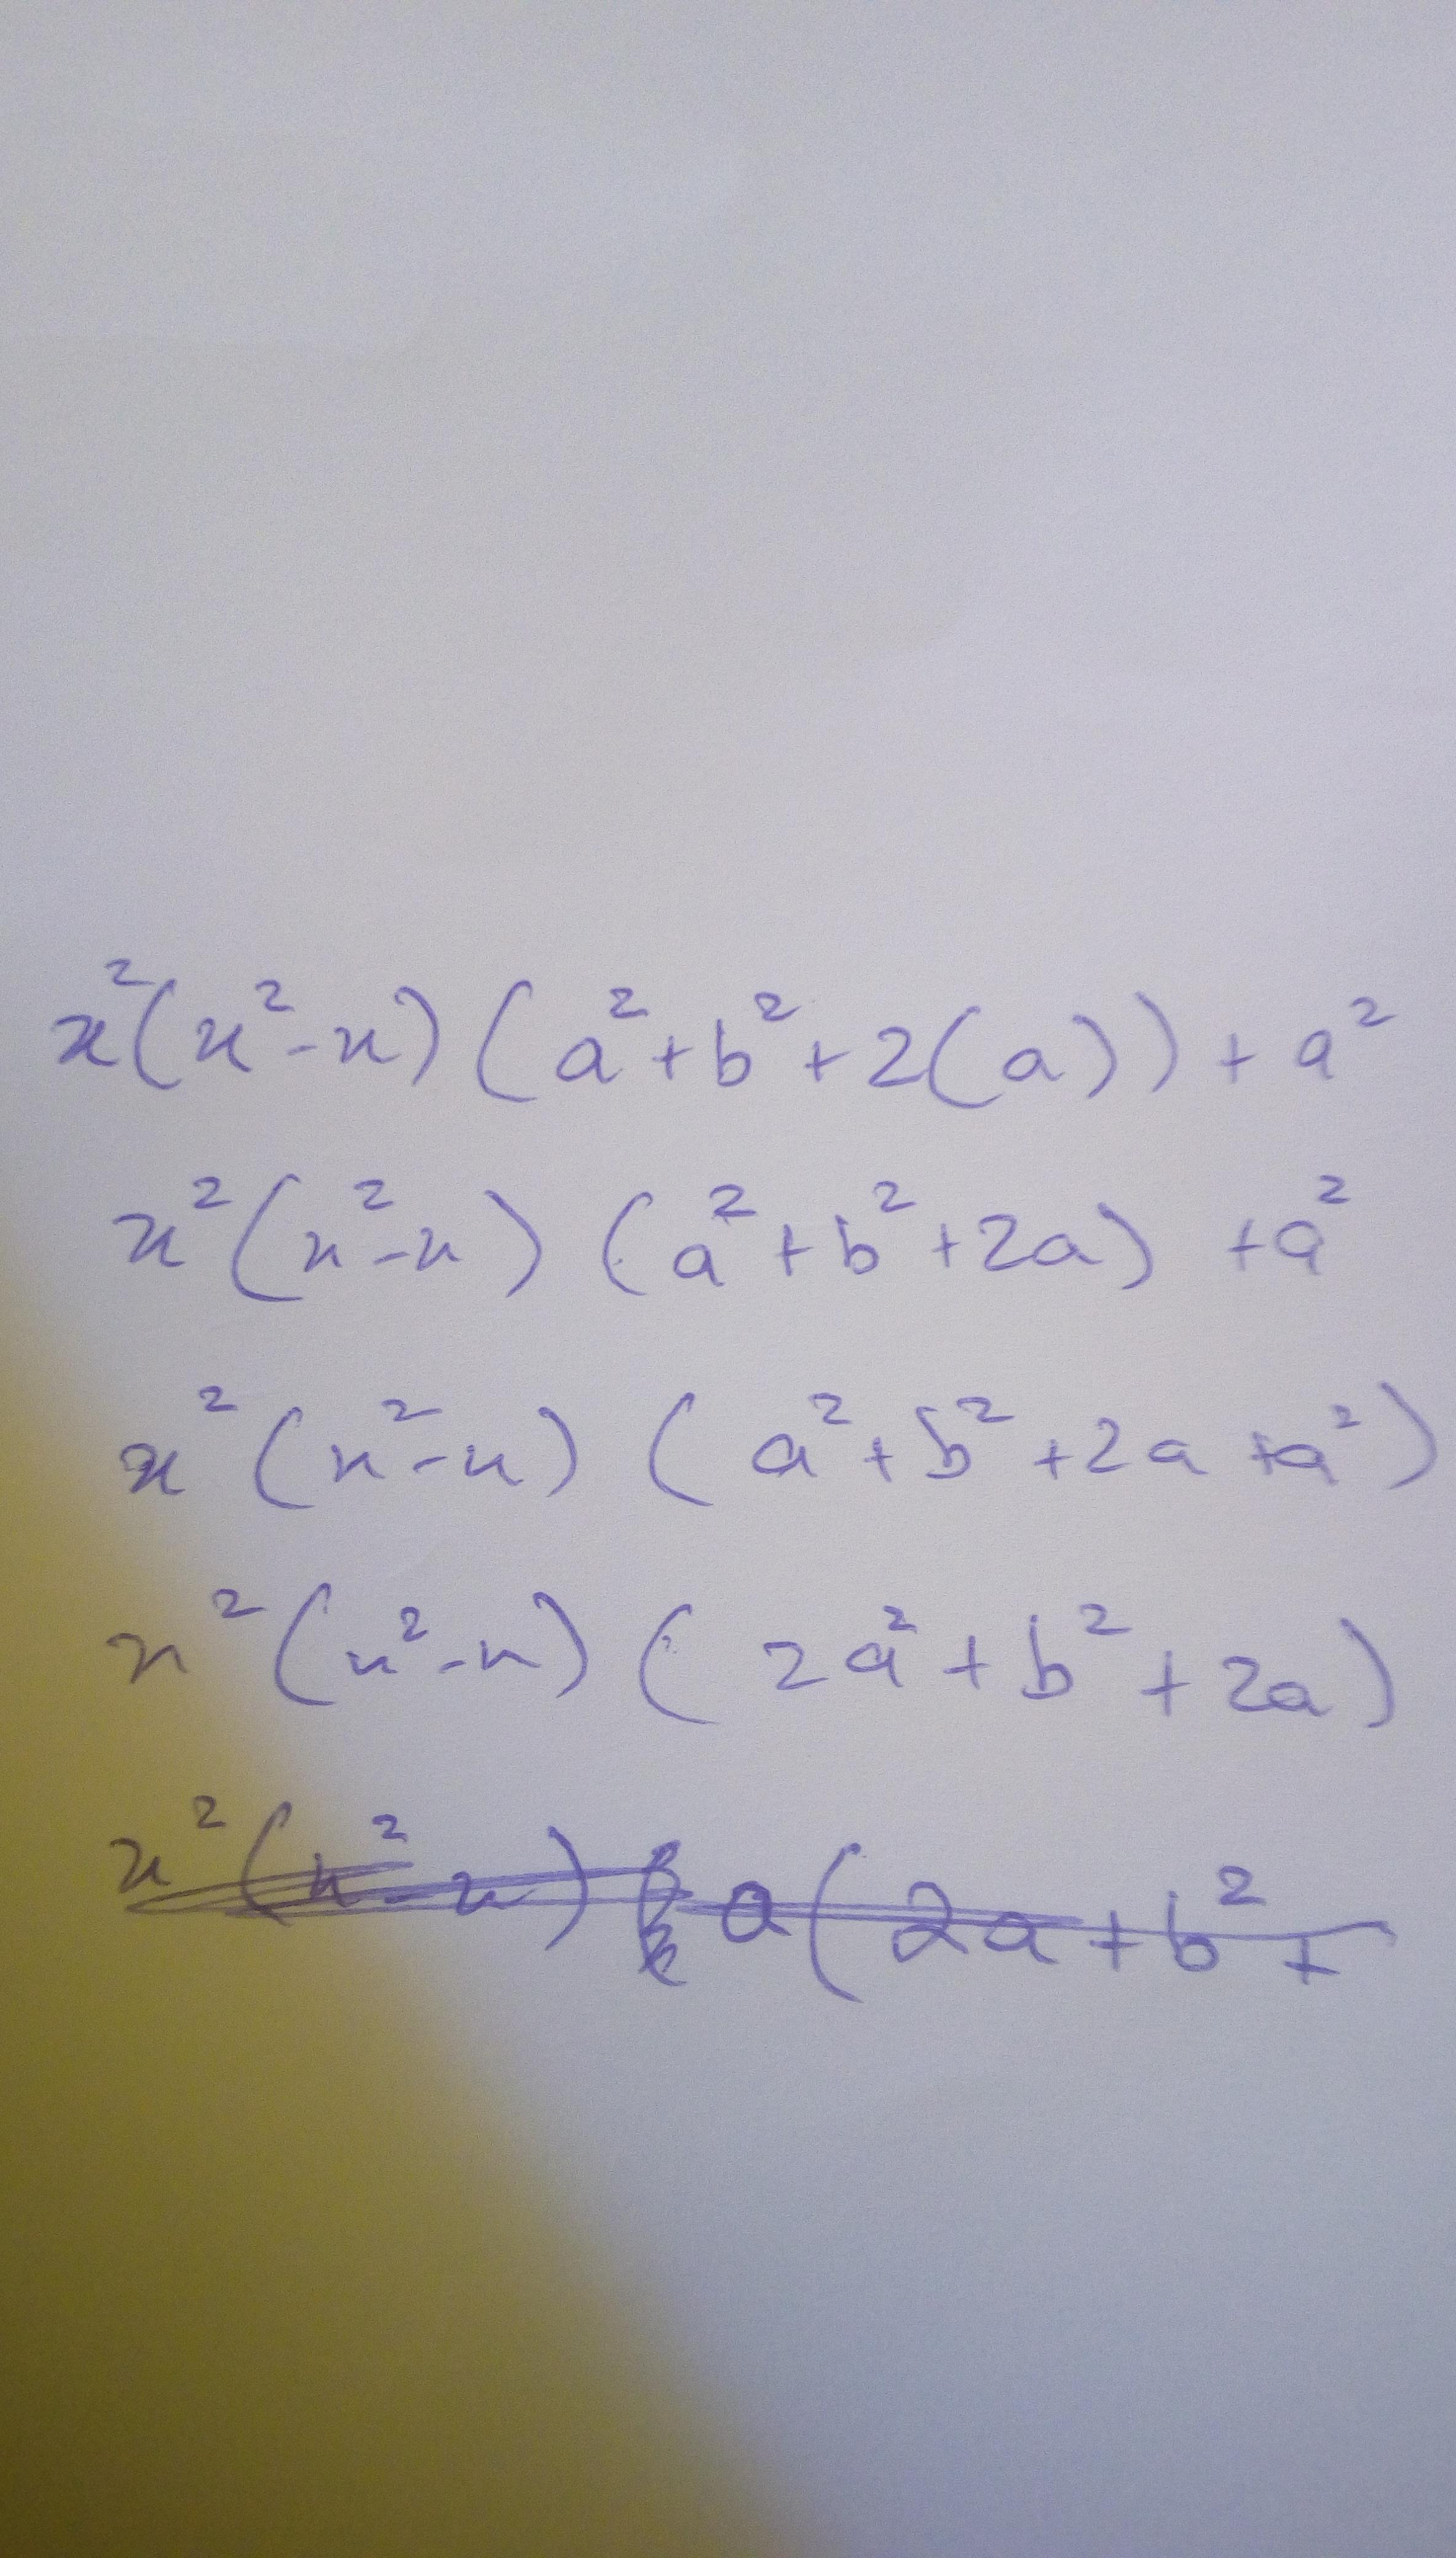 x²(x²-x)(a²+b²+2(a))+a²
x²(x²-x)(a²+b²+2a)+a²
x²(x²-x)(a²+b²+2a+a²)
x²(x²-x)(2a²+b²+2a)
x²(x²-x) a(2a+b²+